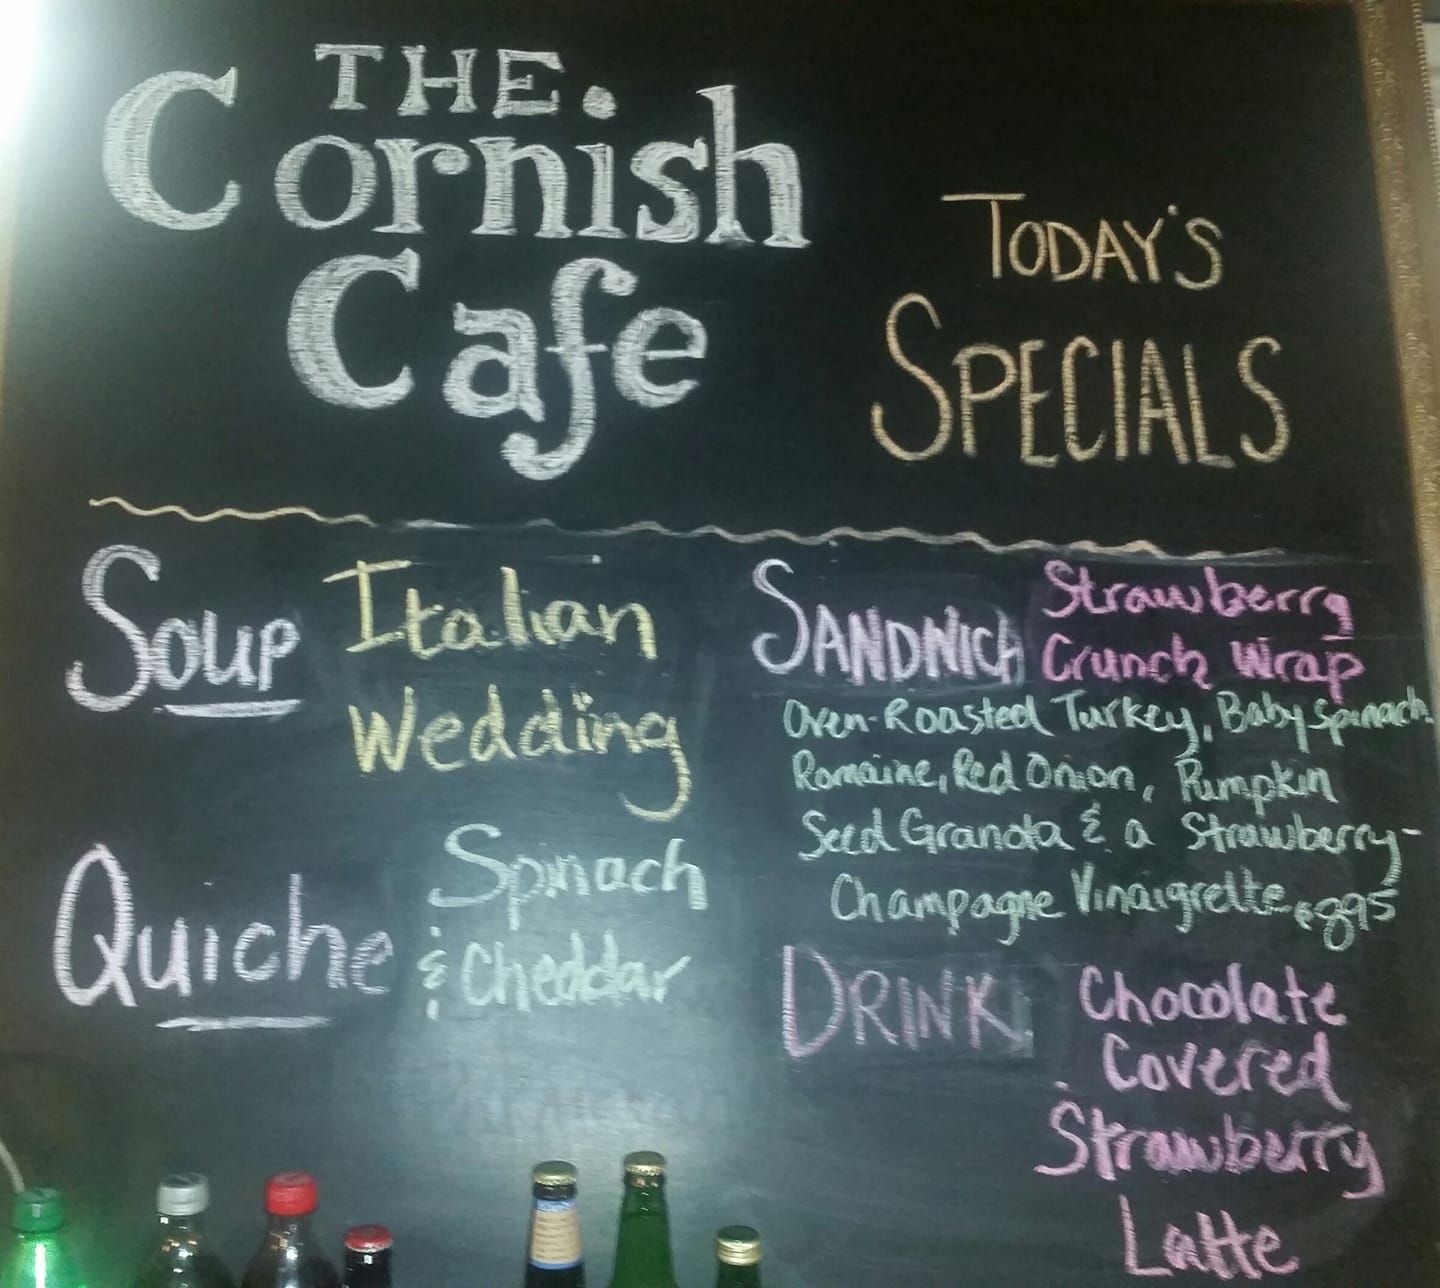 THE
Cornish
Cafe
TODAY'S
SPECIALS
SOUP Italian
Wedding
Quiche Spinach
& Cheddar
SANDWICH Strawberry
Crunch Wrap
Oven-Roasted Turkey, Baby Spinach
Romaine, Red Onion, Pumpkin
Seed Granola & a Strawberry-
Champagne Vinaigrette $8.95
DRINK Chocolate
Covered
Strawberry
Latte